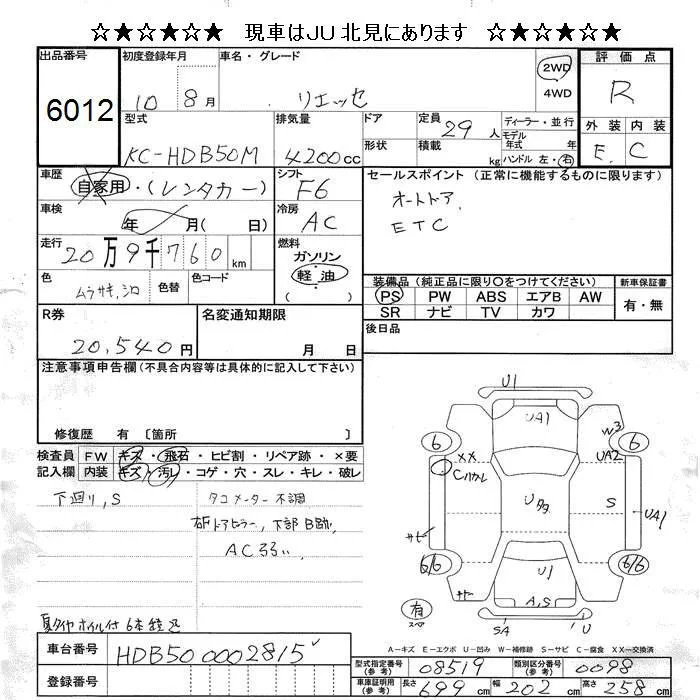 ☆★☆★☆★ 現車はJU北見にあります ☆★☆★☆★
出品番号 初度登録年月 車名・グレード 評価点
6012 10 8月 リエッセ 2WD 4WD R
型式 排気量 ドア 定員 29人 ディーラー・並行 外装 内装
KC-HDB50M 4200cc 形状 積載 kg モデル年式 年 ハンドル 左・右 E. C
車歴 自家用・(レンタカー) シフト F6 セールスポイント (正常に機能するものに限ります)
車検 年 月( 日) 冷房 AC オートドア.
ETC
走行 20万9千760km 燃料 ガソリン 軽油 ( )
色 ムラサキ,シロ 色替 色コード
装備品 (純正品に限り○をつけてください) 新車保証書
PS PW ABS エアB AW 有・無
SR ナビ TV カワ
R券 名変通知期限 後日品
20,540円 月 日
注意事項申告欄(不具合内容等は具体的に記入して下さい)
修復歴 有 〔箇所 〕
検査員 FW キズ・飛石・ヒビ割・リペア跡・×要
記入欄 内装 キズ・汚レ・コゲ・穴・スレ・キレ・破レ
下廻り,S タコメーター不調
右Fドアピラー,下部B跡,
AC弱い.
U1
UA1
6 6
W3
XX UA2
Cハカレ
S UA1
サビ
6/6 6/6
U1
サビ
A,S
有 スペア
SA U
A-キズ E-エクボ U-凹み W-補修跡 S-サビ C-腐食 XX-交換済
夏タイヤホイル付6本積込
車台番号 HDB50 0002815
登録番号
型式指定番号(参考) 08519 類別区分番号(参考) 0098
車庫証明用(参考) 長さ 699cm 幅 202cm 高さ 258cm